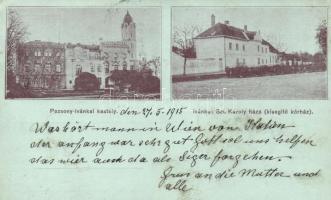 Pozsony-ivánkai kastély. den 27/5 1915 Ivánka: Gri. Károly háza (kisegítő kórház).
Was hört mann in Wien von Italien
der anfang war sehr gut Gott sol uns helfen
das wier auch da als Siger forgehen.
Grus an die Mutter und
alle